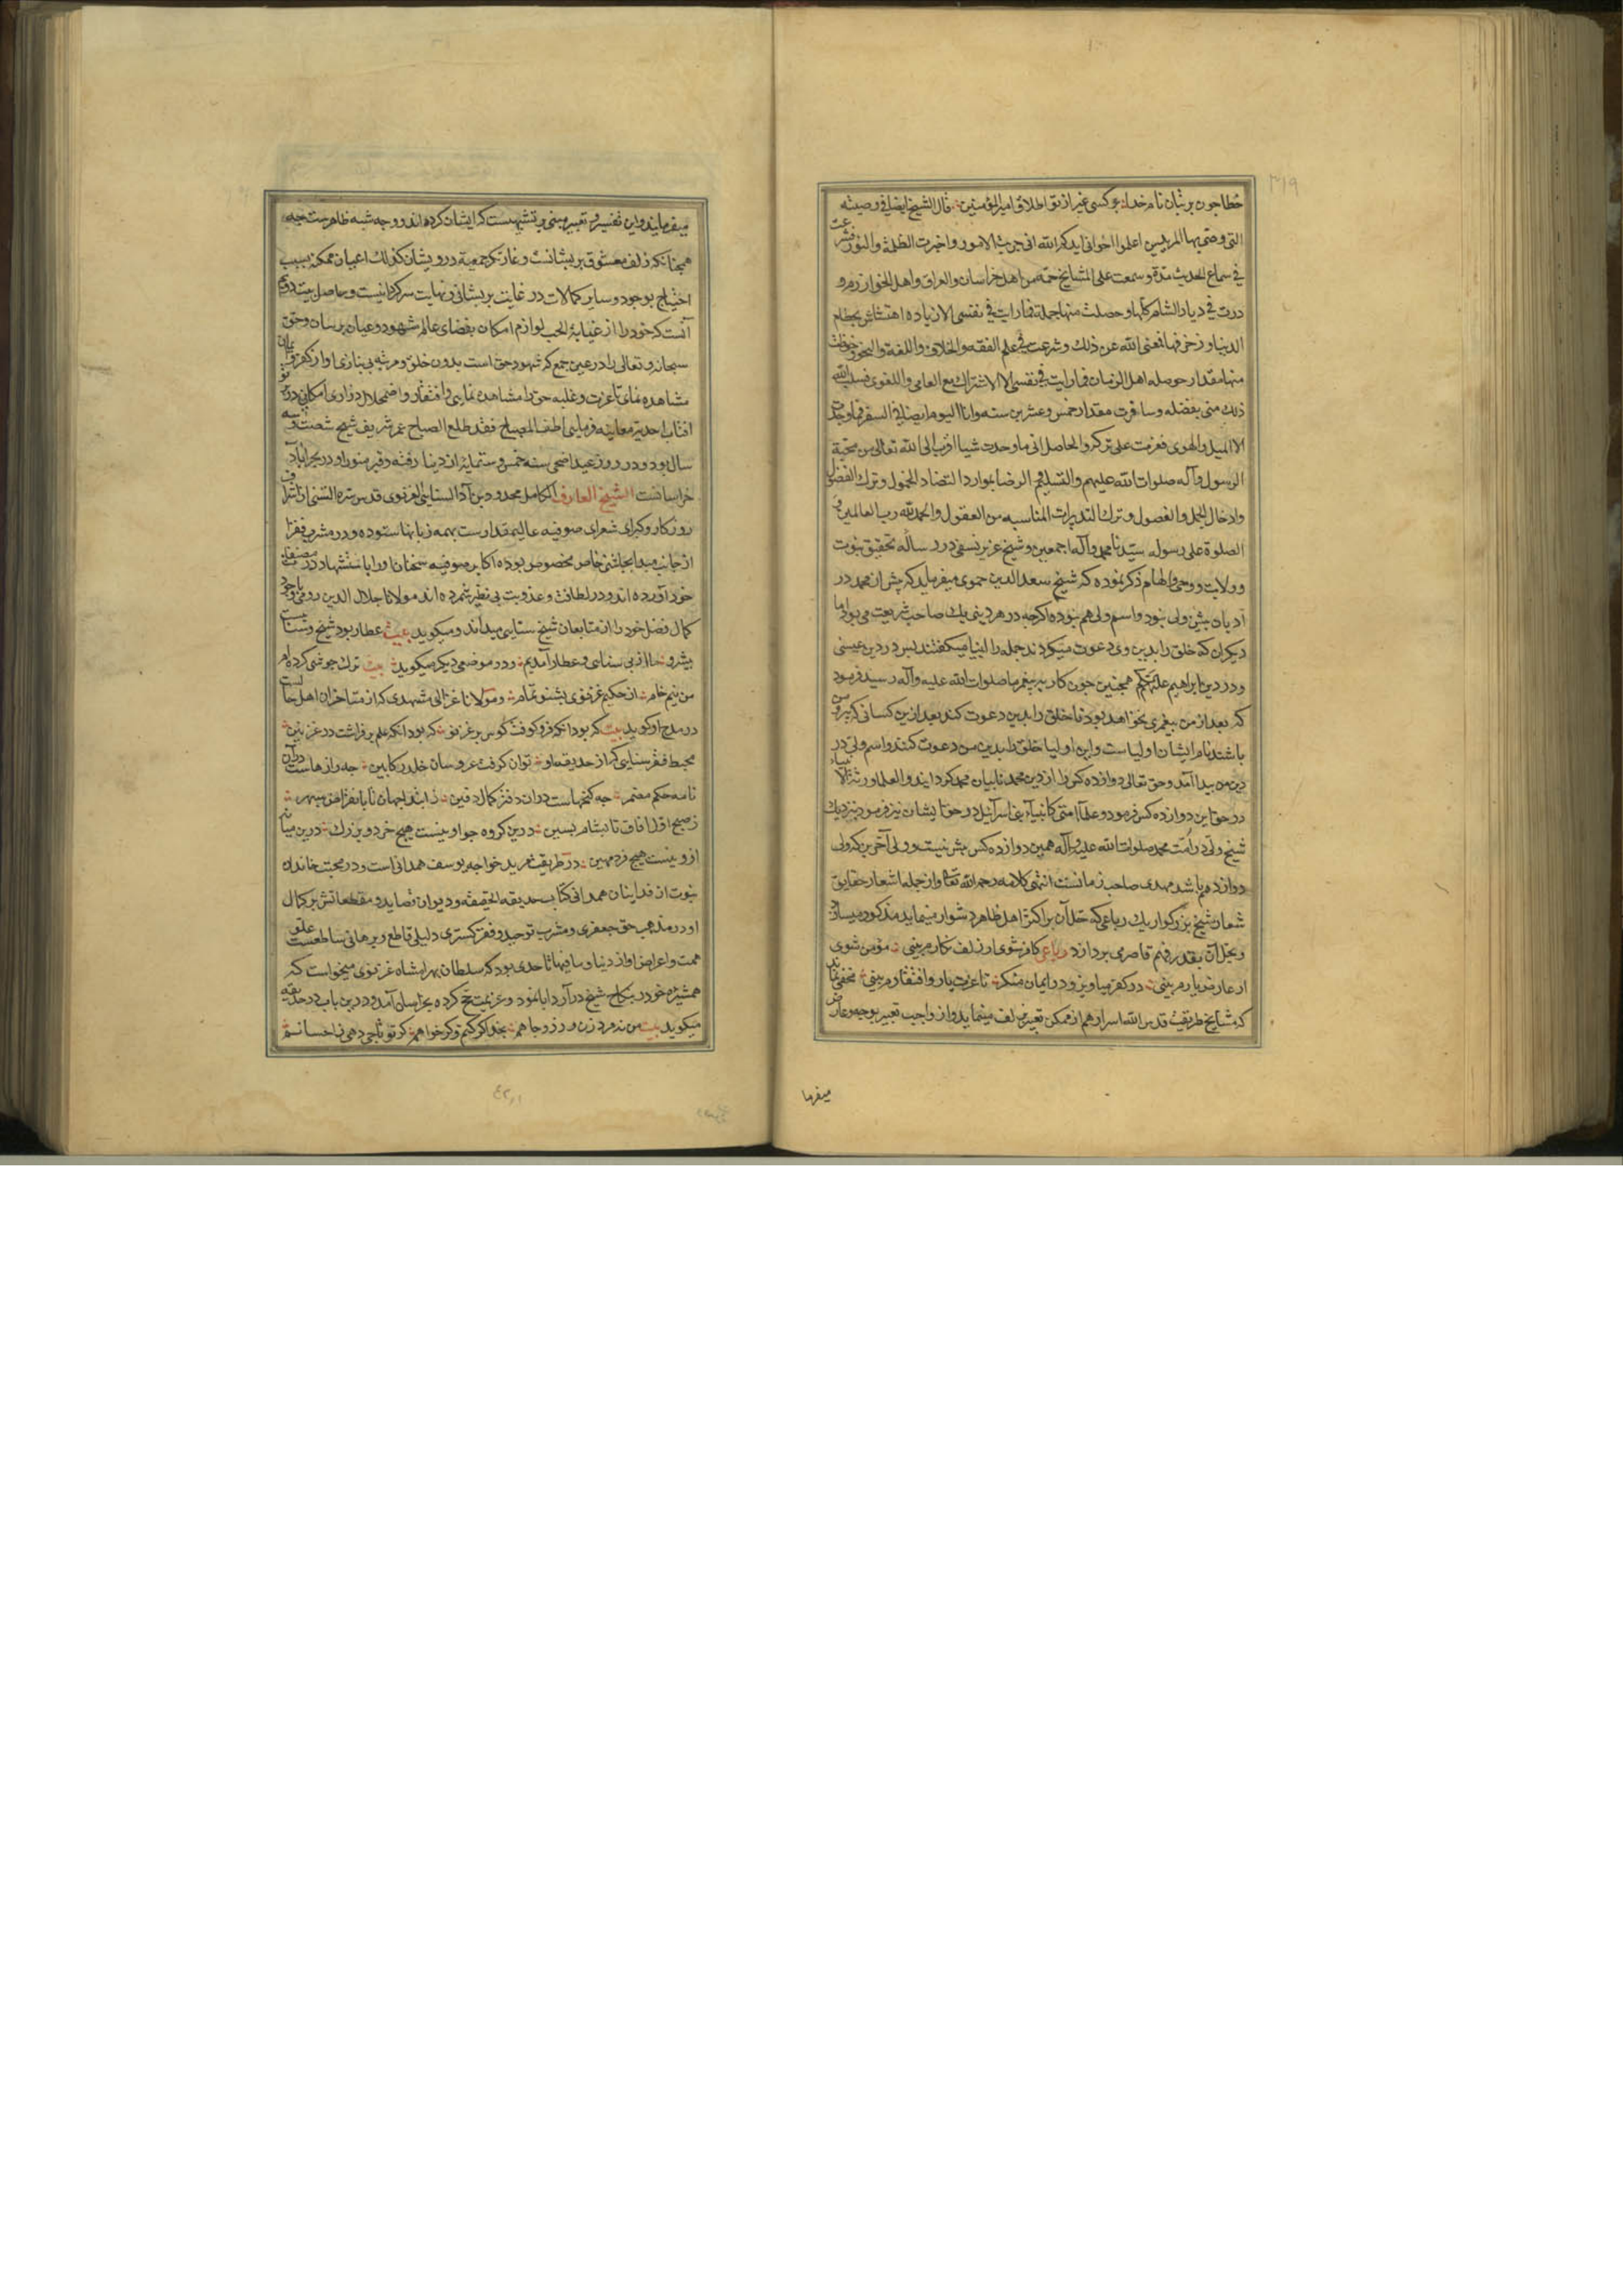 خطا جون بریشان نام خدا بوکسی غیر از تو اطلاق امیر المؤمنین قال الشیخ ایضا فی وصیته
التی وصّی بها المریدین اعلموا اخوانی ایدکم الله انی جربت الامور واخبرت الظلمة والنور
فی سماع الحدیث مدة وسمعت علی المشایخ جمة من اهل خراسان والعراق واهل الخوارزم و
درت فی دیار الشام کلها وحصلت منها جملة فما رایت فی نفسی الا زیادة بحطام
الدنیا وزخرفها فمنعنی الله عن ذلک وشرعت فی علم الفقه والخلاف واللغة والنحو وحفظت
منها مقدار حوصله اهل الزمان فما رایت فی نفسی الا الاشتراک مع العامی واللغوی فسلب الله
ذلک منی بفضله وسافرت مقدار خمس وعشرین سنه وانا الیوم ایضا فی السفر فما وجدت
الا المیل والهوی فعزمت علی ترکه والحاصل انی ما وجدت شیا اقرب الی الله تعالی من محبة
الرسول وآله صلوات الله علیهم والتسلیم الرضا بموارد القضاء الخمول وترک الفضول
وادخال الجمل والفصول وترک التدبیرات المناسبه من العقول والحمد لله رب العالمین و
الصلوة علی رسوله سیدنا محمد وآله اجمعین وشیخ عزیز نسفی در رساله تحقیق نبوت
وولایت ووحی والهام ذکر نموده که شیخ سعد الدین حموی میفرماید که پیش از محمد در
ادیان پیشین ولی نبود واسم ولی هم نبوده اکرچه در هر دینی یک صاحب شریعت می بود اما
دیکران که خلق را بدین وی دعوت میکردند جمله را انبیا میکفتند پس در دین عیسی
ودر دین ابراهیم علیهم همچنین جون کار به پیغمبر ما صلوات الله علیه وآله رسید فرمود
که بعد از من پیغمبری نخواهد بود تا خلق را بدین دعوت کند بعد ازین کسانی که پیرو من
باشند نام ایشان اولیاست واین اولیا خلق را بدین من دعوت کنند واسم ولی در
دین من پیدا آمد وحق تعالی دوازده کس را از دین محمد نایبان محمد کردانید والعلما ورثة الانبیاء
در حق این دوازده کس فرمود وعلماء امتی کانبیاء بنی اسرائیل در حق ایشان نیز فرمود بنزدیک
شیخ ولی در امت محمد صلوات الله علیه وآله همین دوازده کس بیش نیست وولی آخرین که ولی
دوازدهم باشد مهدی صاحب زمانست انتهی کلامه رحمه الله تعالی واز جمله اشعار حقایق
شعار شیخ بزرکوار یک رباعی که حل آن بر اکثر اهل ظاهر دشوار مینماید مذکور میسازد
وبحل آن بقدر فهم قاصر می پردازد رباعی کافر شوی ار زلف نکارم بینی مؤمن شوی
ار عارض یارم بینی در کفر میاویز ودر ایمان منکر تا عزت یار وافتقارم بینی مخفی نماند
که مشایخ طریقت قدس الله اسرارهم از ممکن تعبیر بزلف مینمایند واز واجب تعبیر بوجه وعارض
میفرما
میفرمایند واین تفسیر وتعبیر مبنی بر تشبیهیست که ایشان کرده اند ووجه شبه ظاهرست چه
همچنانکه زلف معشوق پریشانست وغارتکر جمعیة درویشان کذلک اعیان ممکنه بسبب
احتیاج بوجود وسایر کمالات در غایت پریشانی ونهایت سرکردانیست وحاصل بیت دوم
آنست که خود را از غیابة الجب لوازم امکان بفضای عالم شهود وعیان برسان وحق
سبحانه وتعالی را در عین جمع که شهود حق است بدون خلق ومرتبه بی نیازی او از کفر وایمان
مشاهده نمای تا عزت وغلبه حق را مشاهده نمایی وافتقار واضمحلال ذواری امکان در پرتو
افتاب احدیت معاینه فرمایی اطف المصباح فقد طلع الصباح عمر شریف شیخ شصت وسه
سال بود ودر روز عید اضحی سنه خمس وستمایه از دنیا رفته وقبر منور او در بحراباد
خراسانست الشیخ العارف الکامل مجدود بن آدم السنایی الغزنوی قدس سره السنی از اشراف
روزکار وکبرای شعرای صوفیه عالیمقدارست بهمه زبانها ستوده ودر مشرب فقرا
از جانب مبدا بچاشنی خاص مخصوص بوده اکابر صوفیه سخنان او را باستشهاد در مصنفات
خود آورده اند ودر لطافت وعذوبت بی نظیر شمرده اند مولانا جلال الدین رومی با وجود
کمال فضل خود را از متابعان شیخ سنایی میداند ومیکوید بیت عطار بود شیخ وسناییست
پیشرو ما از پی سنایی وعطار آمدیم ودر موضعی دیکر میکوید بیت ترک جوشی کرده ام
من نیم خام از حکیم غزنوی بشنو تمام ومولانا غزالی مشهدی که از متاخران اهل حالست
در مدح او کوید بیت که بود آنکه فرو کوفت کوس بر غزنین که بود آنکه علم بر فراشت در غزنین
محیط فقر سنایی که از حدیقه او توان کرفت عروسان خلد را کابین چه رازهاست در آن
نامه حکم مضمر چه کنجهاست در آن دفتر کمال دفین ز ابتدای جهان تا بانقراض سپهر
ز صبح اول آفاق تا بشام پسین درین کروه جو او نیست هیچ خرد وبزرک درین میانه
ازو نیست هیچ فرد مهین در طریقت مرید خواجه یوسف همدانی است ودر محبت خاندان
نبوت از فداییان همدانی کتاب حدیقه الحقیقه ودیوان قصاید ومقطعاتش بر کمال
او در مذهب حق جعفری ومشرب توحید وفقر کستری دلیلی قاطع وبرهانی ساطعست علو
همت واعراض او از دنیا وما فیها تا حدی بود که سلطان بهرامشاه غزنوی میخواست که
همشیره خود در نکاح شیخ در آرد ابا نمود وعزیمت حج کرده بخراسان آمد ودرین باب در حدیقه
میکوید بیت من نه مرد زن وزر وجاهم بخدا کر کنم وکر خواهم کر تو تاجی دهی ز احسانم